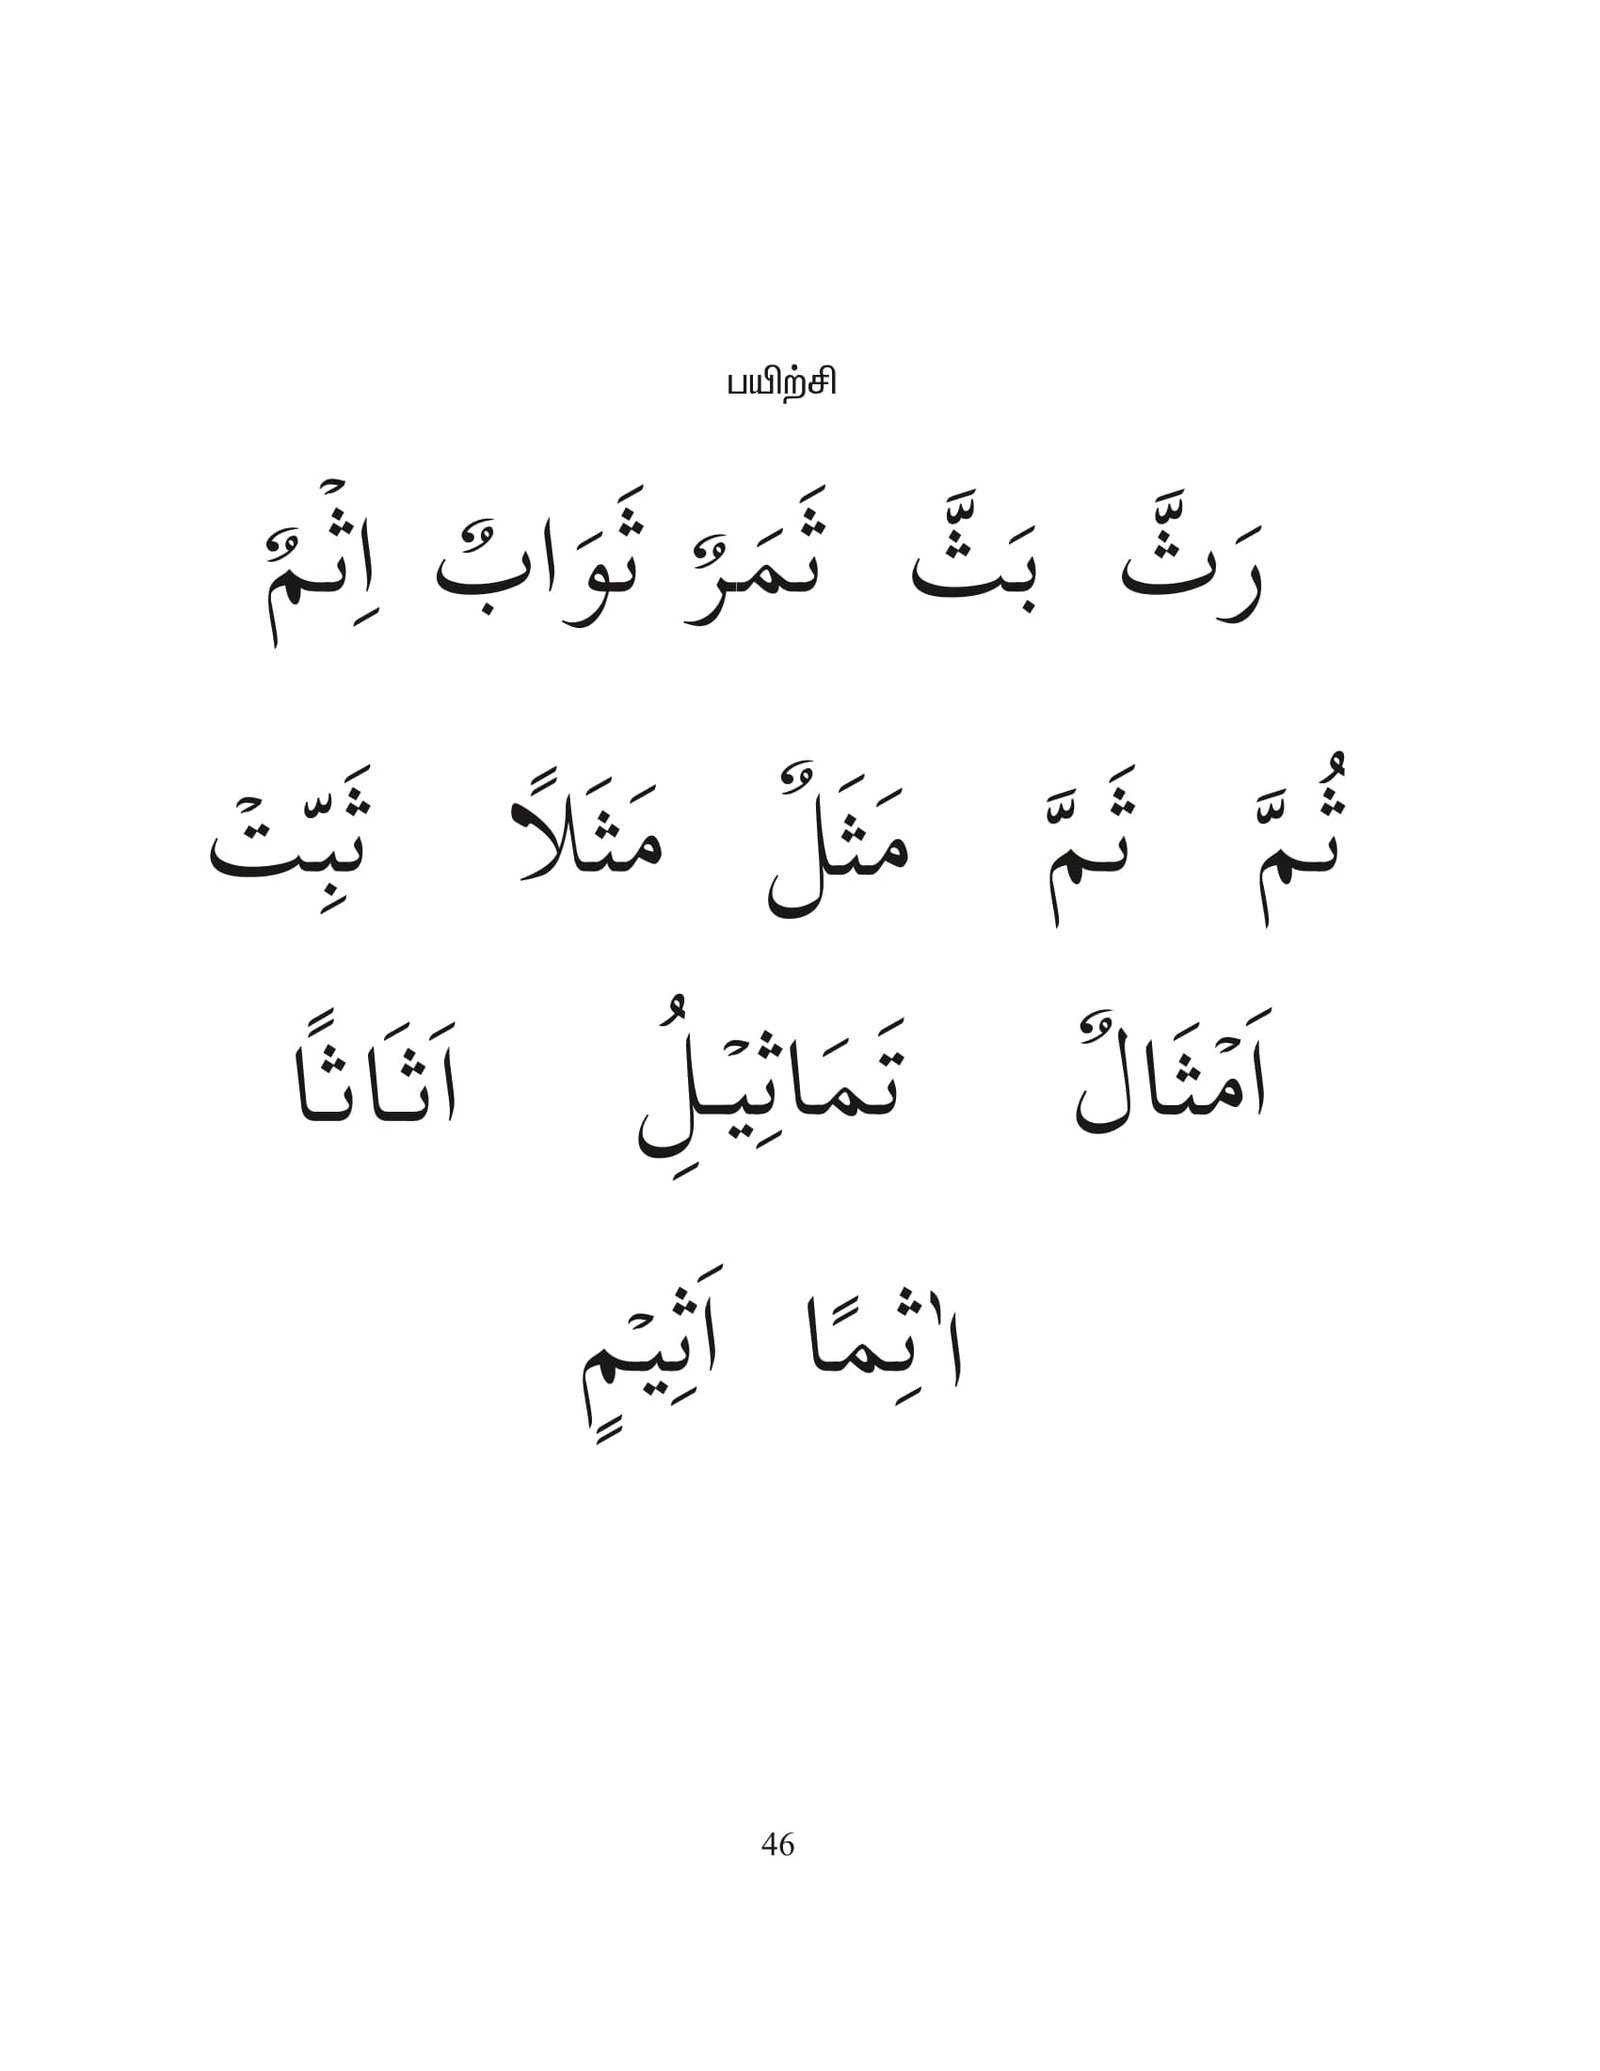 பயிற்சி
رَثَّ بَثَّ ثَمَرٌ ثَوَابٌ اِثْمٌ
ثُمَّ ثَمَّ مَثَلٌ مَثَلاً ثَبِّتْ
اَمْثَالٌ تَمَاثِيْلُِ اَثَاثًا
اٰثِمًا اَثِيْمٍ
46